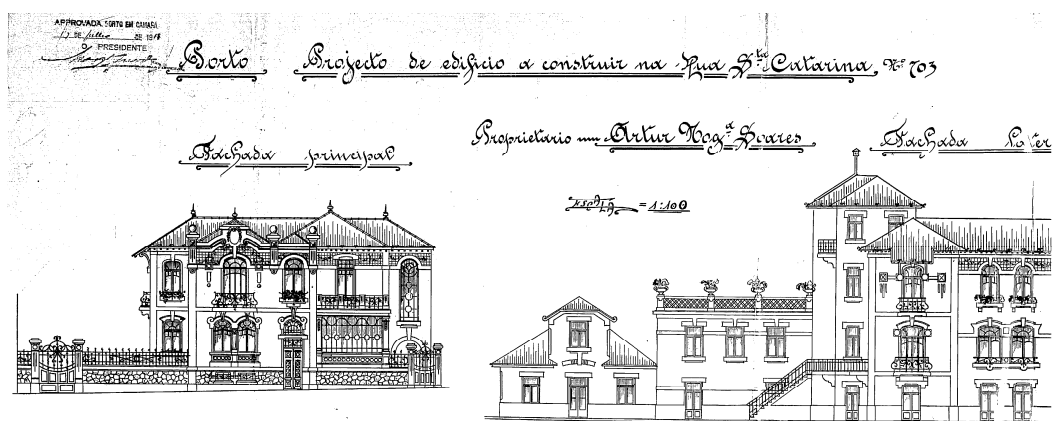 APPROVADA, PORTO EM CAMARA
DE DE 191
O PRESIDENTE
Porto Projecto de edificio a construir na Rua Sta Catarina, Nº 703
Proprietario Artur Nogª Soares
Fachada principal
Fachada Later
ESCALA = 1:100